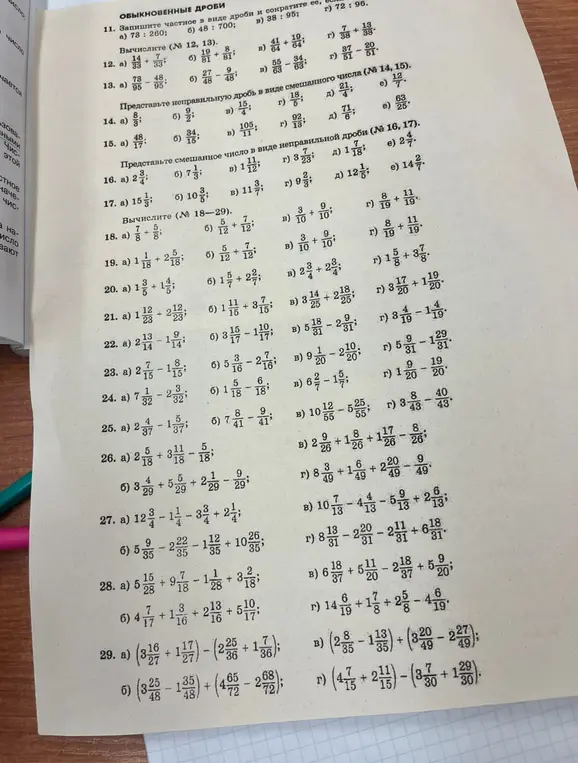 ОБЫКНОВЕННЫЕ ДРОБИ
11. Запишите частное в виде дроби и сократите ее,
а) 78 : 260; б) 48 : 700; в) 38 : 95; г) 72 : 96.
Вычислите (№ 12, 13).
12. а) 14/33 + 7/33; б) 19/81 + 8/81; в) 41/64 + 19/64; г) 7/38 + 13/38.
13. а) 78/95 − 48/95; б) 27/48 − 9/48; в) 55/63 − 34/63; г) 37/51 − 20/51.
Представьте неправильную дробь в виде смешанного числа (№ 14, 15).
14. а) 8/3; б) 9/2; в) 15/4; г) 18/5; д) 21/4; е) 12/7.
15. а) 48/17; б) 34/15; в) 105/11; г) 92/13; д) 71/6; е) 63/25.
Представьте смешанное число в виде неправильной дроби (№ 16, 17).
16. а) 2 3/4; б) 7 1/3; в) 1 11/12; г) 3 7/23; д) 1 7/18; е) 2 4/7.
17. а) 15 1/3; б) 10 3/5; в) 11 3/7; г) 9 2/3; д) 12 1/5; е) 14 2/7.
Вычислите (№ 18—29).
18. а) 7/8 + 5/8; б) 5/12 + 7/12; в) 3/10 + 9/10; г) 8/19 + 11/19.
19. а) 1 1/18 + 2 5/18; б) 5/12 + 7/12; в) 3/10 + 9/10; г) 8/19 + 11/19.
20. а) 1 3/5 + 1 4/5; б) 1 5/7 + 2 2/7; в) 2 3/4 + 2 3/4; г) 1 5/8 + 3 7/8.
21. а) 1 12/23 + 2 12/23; б) 1 11/15 + 3 7/15; в) 3 14/25 + 2 18/25; г) 3 17/20 + 1 19/20.
22. а) 2 13/14 − 1 9/14; б) 3 15/17 − 1 10/17; в) 5 18/31 − 2 9/31; г) 3 4/19 − 1 4/19.
23. а) 2 7/15 − 1 8/15; б) 5 3/16 − 2 7/16; в) 9 1/20 − 2 10/20; г) 5 9/31 − 1 29/31.
24. а) 7 1/32 − 2 3/32; б) 1 5/18 − 6/18; в) 6 2/7 − 1 5/7; г) 1 9/20 − 19/20.
25. а) 2 4/37 − 1 5/37; б) 7 8/41 − 9/41; в) 10 12/55 − 5 25/55; г) 3 8/43 − 40/43.
26. а) 2 5/18 + 3 11/18 − 5/18; в) 2 9/26 + 1 8/26 + 1 17/26 − 8/26;
б) 3 4/29 + 5 5/29 + 2 1/29 − 9/29; г) 8 3/49 + 1 6/49 + 2 20/49 − 9/49.
27. а) 12 3/4 − 1 1/4 − 3 3/4 + 2 1/4; в) 10 7/13 − 4 4/13 − 5 9/13 + 2 6/13;
б) 5 9/35 − 2 22/35 − 1 12/35 + 10 26/35; г) 8 13/31 − 2 20/31 − 2 11/31 + 6 18/31.
28. а) 5 15/28 + 9 7/18 − 1 1/28 + 3 2/18; в) 6 18/37 + 5 11/20 − 2 18/37 + 5 9/20;
б) 4 7/17 + 1 3/16 + 2 13/16 + 5 10/17; г) 14 6/19 + 1 7/8 + 2 5/8 − 4 6/19.
29. а) (3 16/27 + 1 17/27) − (2 25/36 + 1 7/36); в) (2 8/35 − 1 13/35) + (3 20/49 − 2 27/49);
б) (3 25/48 − 1 35/48) + (4 65/72 − 2 68/72); г) (4 7/15 + 2 11/15) − (3 7/30 + 1 29/30).